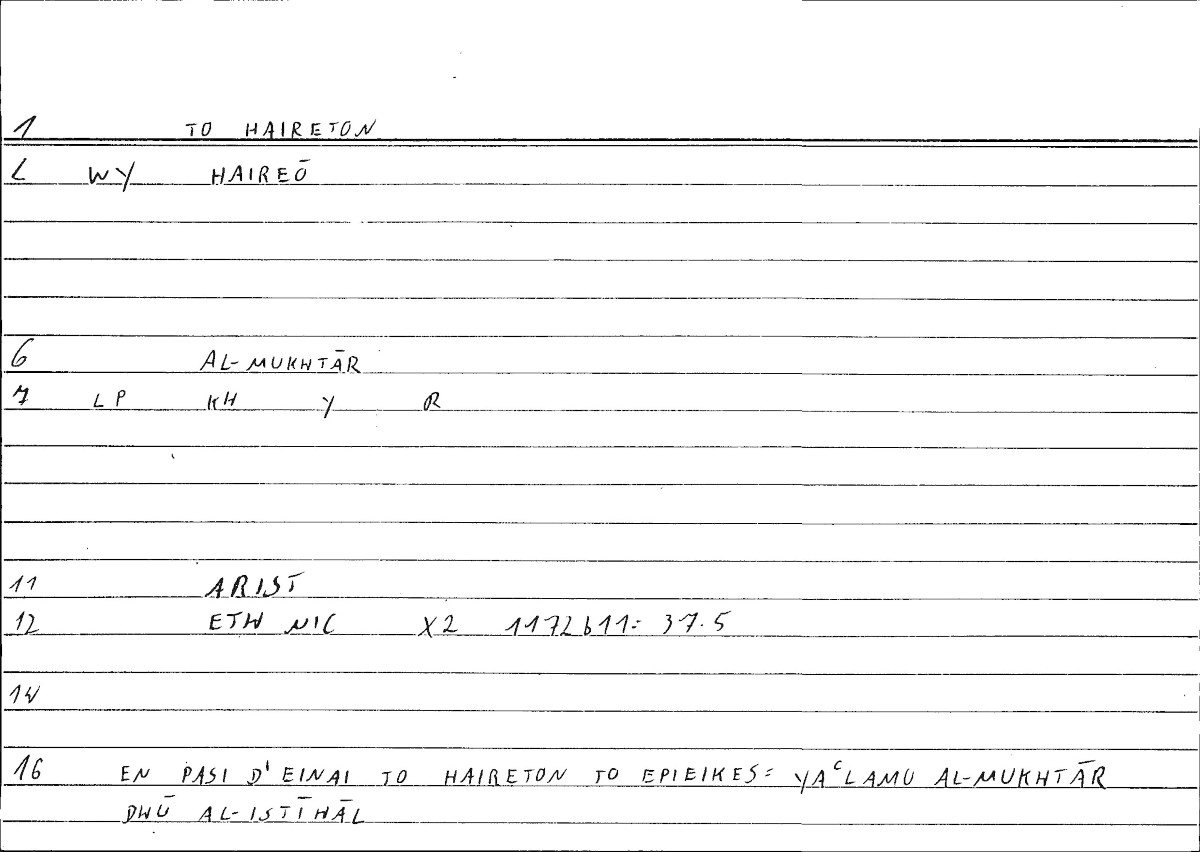 1 TO HAIRETON
2 WY HAIREŌ
6 AL-MUKHTĀR
7 LP KH Y R
11 ARIST
12 ETH NIC X2 1172b11: 37.5
14
16 EN PASI D'EINAI TO HAIRETON TO EPIEIKES: YAᶜLAMU AL-MUKHTĀR
DHŪ AL-ISTĪHĀL